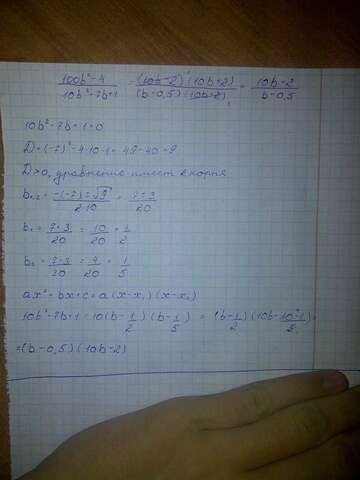 100b²-4 / 10b²-7b+1 = (10b-2)(10b+2) / (b-0,5)(10b-2) = 10b+2 / b-0,5
10b²-7b+1=0
D=(-7)²-4·10·1=49-40=9
D>0, уравнение имеет 2 корня
b₁,₂ = -(-7)±√9 / 2·10 = 7±3 / 20
b₁ = 7+3 / 20 = 10 / 20 = 1 / 2
b₂ = 7-3 / 20 = 4 / 20 = 1 / 5
ax²+bx+c=a(x-x₁)(x-x₂)
10b²-7b+1=10(b-1/2)(b-1/5) = (b-1/2)(10b-10·1/5)=
=(b-0,5)(10b-2)